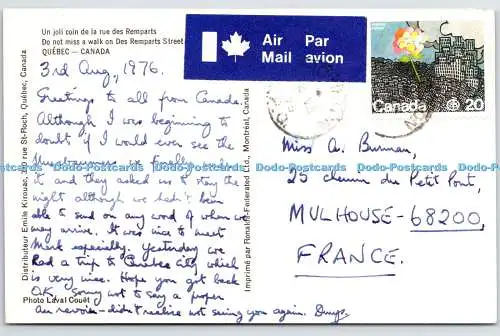 Un joli coin de la rue des Remparts
Do not miss a walk on Des Remparts Street
QUÉBEC — CANADA
Air Par
Mail avion
Canada 20
3rd Aug, 1976.
Greetings to all from Canada.
Although I was beginning to
doubt if I would ever see the
we finally made
it and they asked us to stay the
night although we hadn't been
able to send on any word of when we
may arrive. It was nice to meet
Mark especially. Yesterday we
had a trip to Quebec City which
is very nice. Hope you got back
O.K. Sorry not to say a proper
Au revoir - didn't realise not seeing you again.
Miss A. Burman,
25 chemin du Petit Pont,
MULHOUSE - 68200,
FRANCE.
Distributeur Emile Kirouac, rue St-Roch, Québec, Canada
Imprimé par Ronalds-Federated Ltd., Montréal, Canada
Photo Laval Couët
Dodo-Postcards Dodo-Postcards Dodo-Postcards Dodo-Postcards Dodo-Postcards